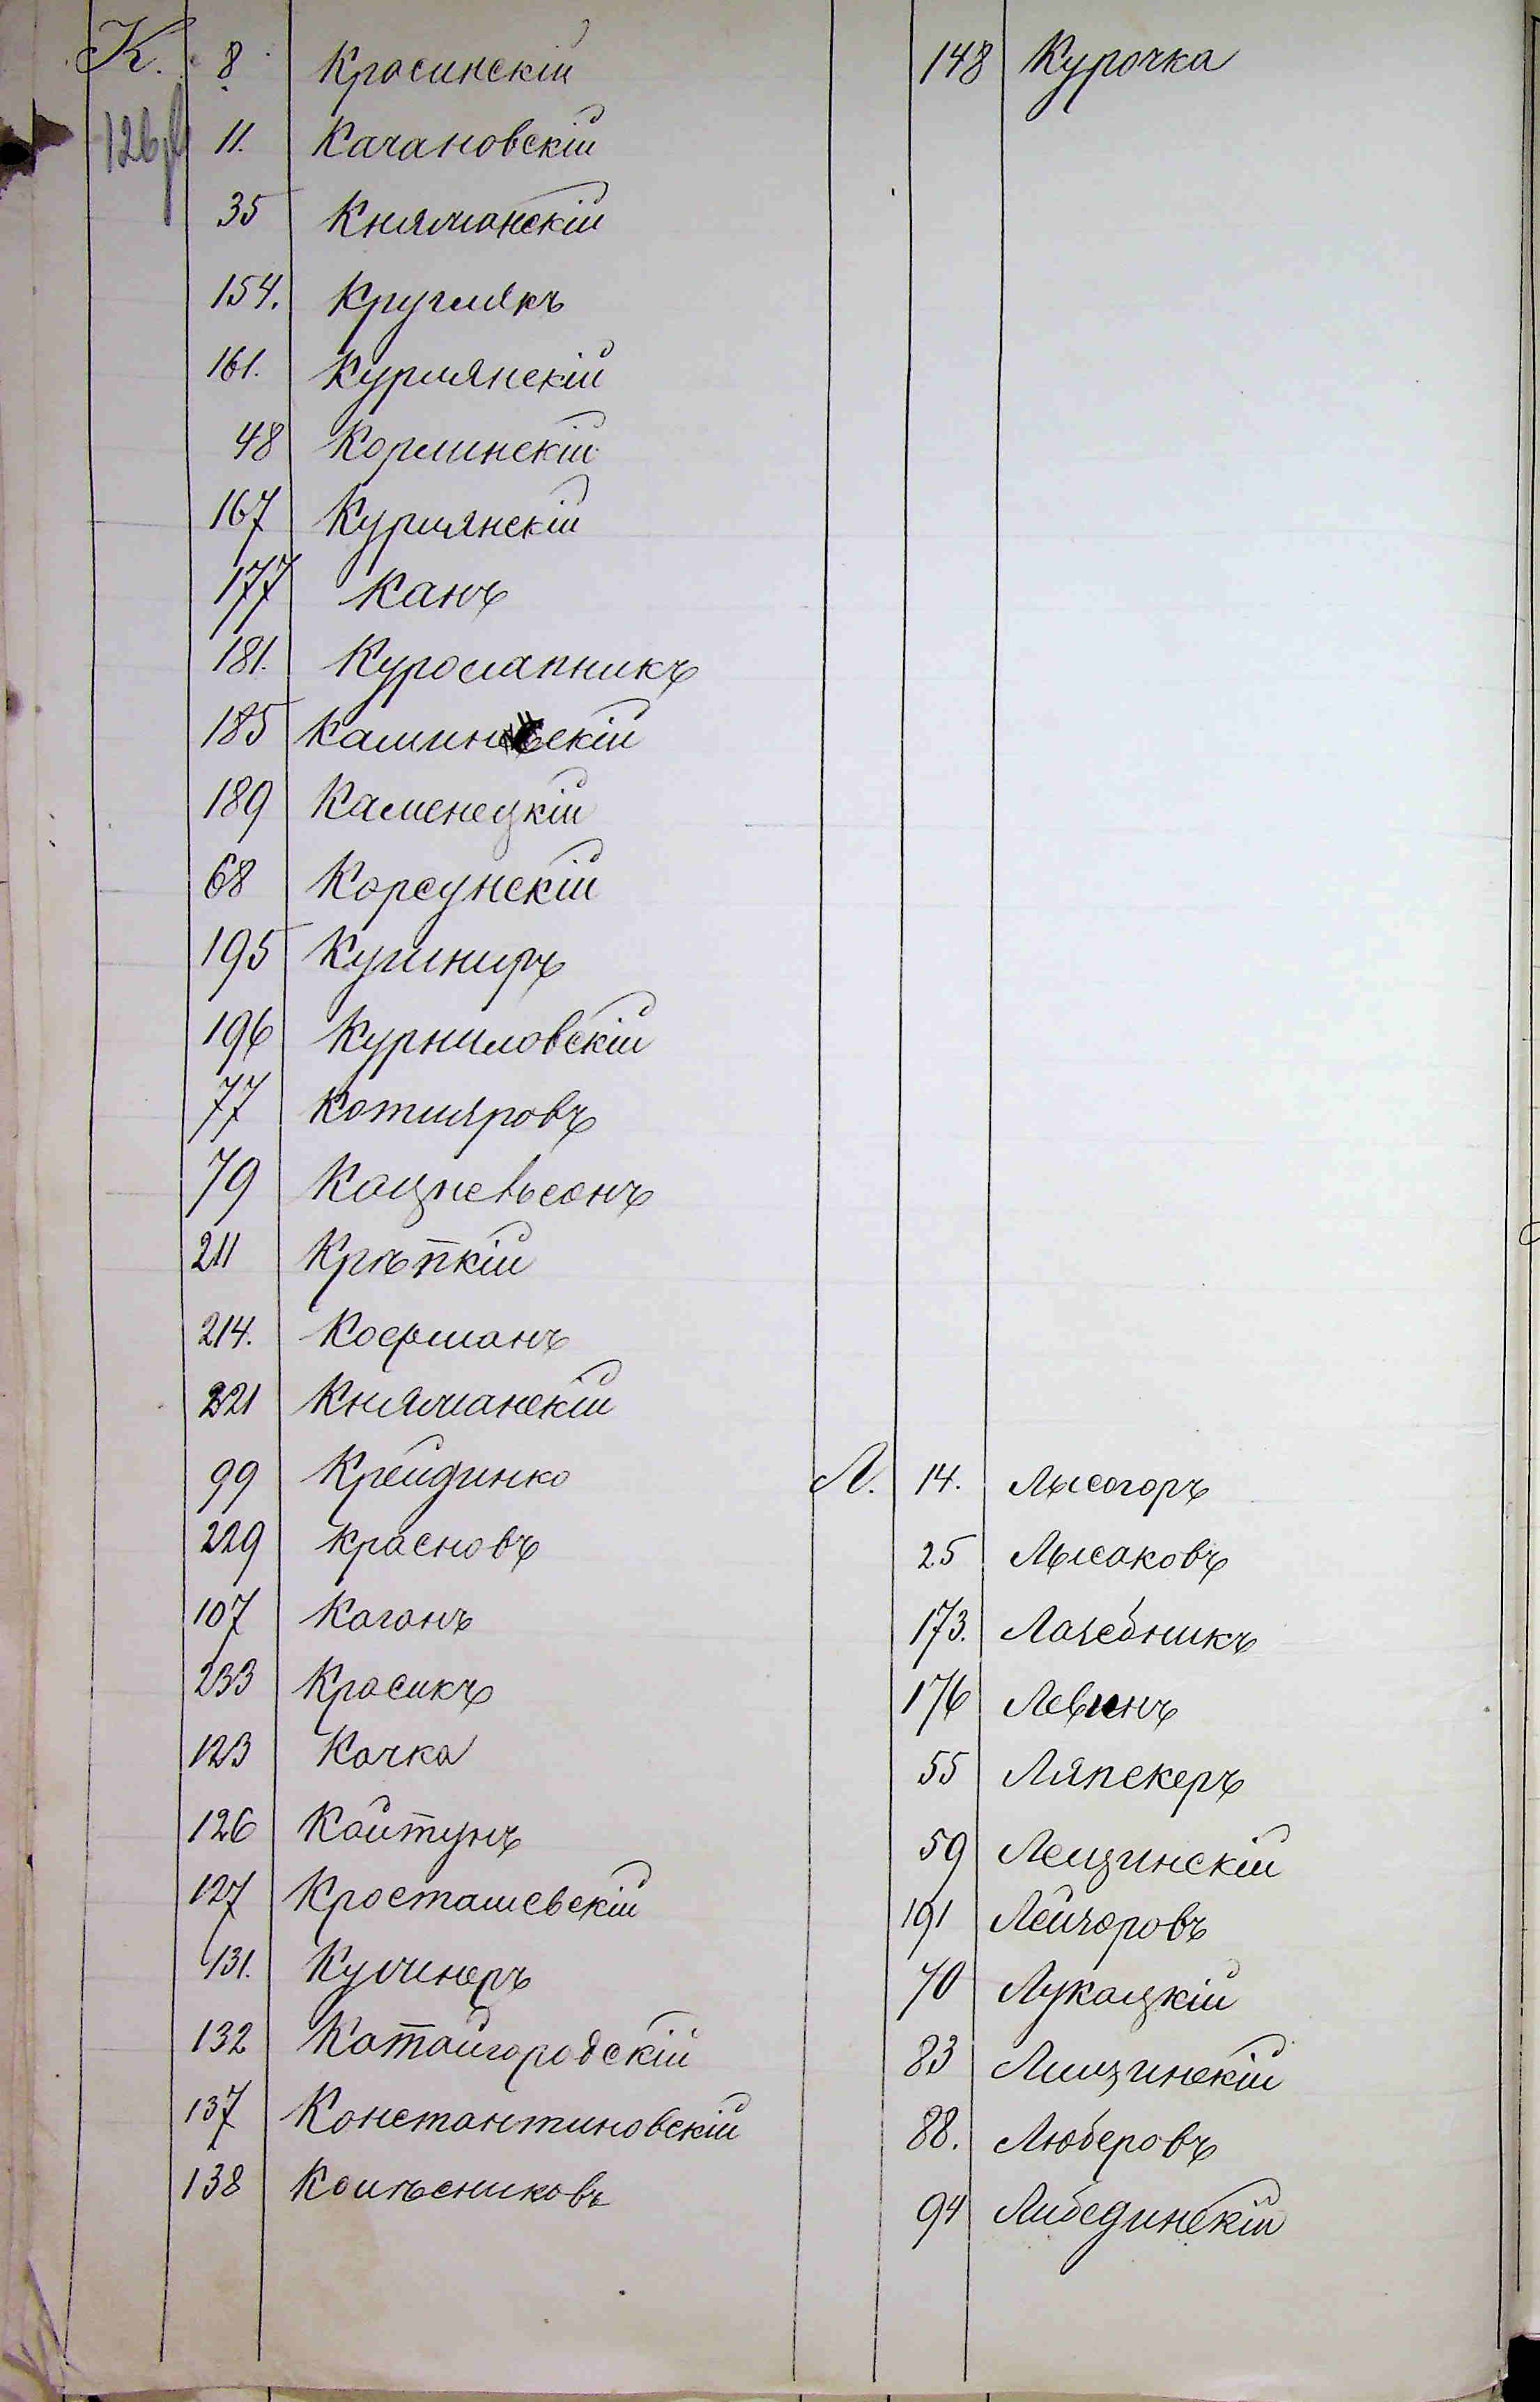 К. 8 Красинскій
11. Качановскій
35 Княжанскій
154. Круглякъ
161. Курлянскій
48 Корлинскій
167 Курлянскій
177 Канъ
181. Курослапникъ
185 Каминскій
189 Каменецкій
68 Корсунскій
195 Кушниръ
196 Курниловскій
77 Котляровъ
79 Кацневьсонъ
211 Крѣпкій
214. Кофманъ
221 Княжанскій
99 Крейдинко
229 Красновъ
107 Каганъ
233 Красикъ
123 Качка
126 Койтунъ
127 Кросташевскій
131. Кушнеръ
132 Катайгородскій
137 Константиновскій
138 Колѣсниковъ
148 Курочка
Л. 14. Лысогоръ
25 Лысаковъ
173. Лазебникъ
176 Левинъ
55 Ляпскеръ
59 Лещинскій
191 Лейчеровъ
70 Лукацкій
83 Лищинскій
88. Люберовъ
94 Либединскій